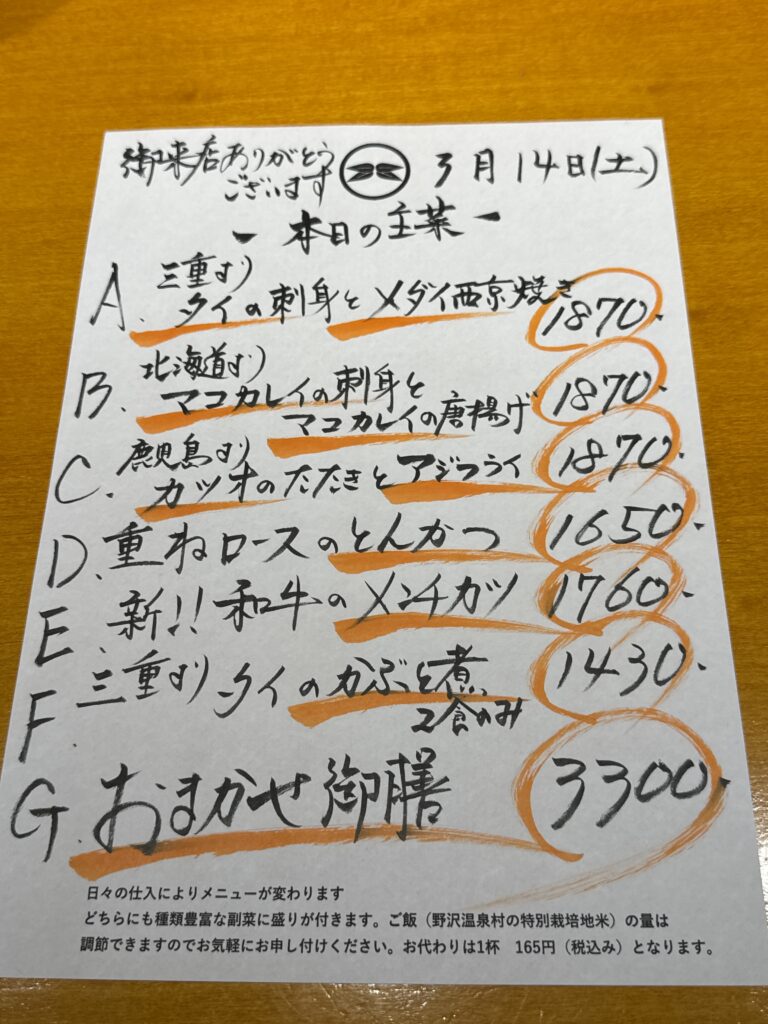 御来店ありがとう
ございます
3月14日(土)
- 本日の主菜 -
A. 三重より
タイの刺身とメダイ西京焼き 1870.
B. 北海道より
マコカレイの刺身と
マコカレイの唐揚げ 1870.
C. 鹿児島より
カツオのたたきとアジフライ 1870.
D. 重ねロースのとんかつ 1650.
E. 新!! 和牛のメンチカツ 1760.
F. 三重より タイのかぶと煮 1430.
2食のみ
G. おまかせ御膳 3300.
日々の仕入によりメニューが変わります
どちらにも種類豊富な副菜に盛りが付きます。ご飯(野沢温泉村の特別栽培地米)の量は
調節できますのでお気軽にお申し付けください。お代わりは1杯 165円(税込み)となります。